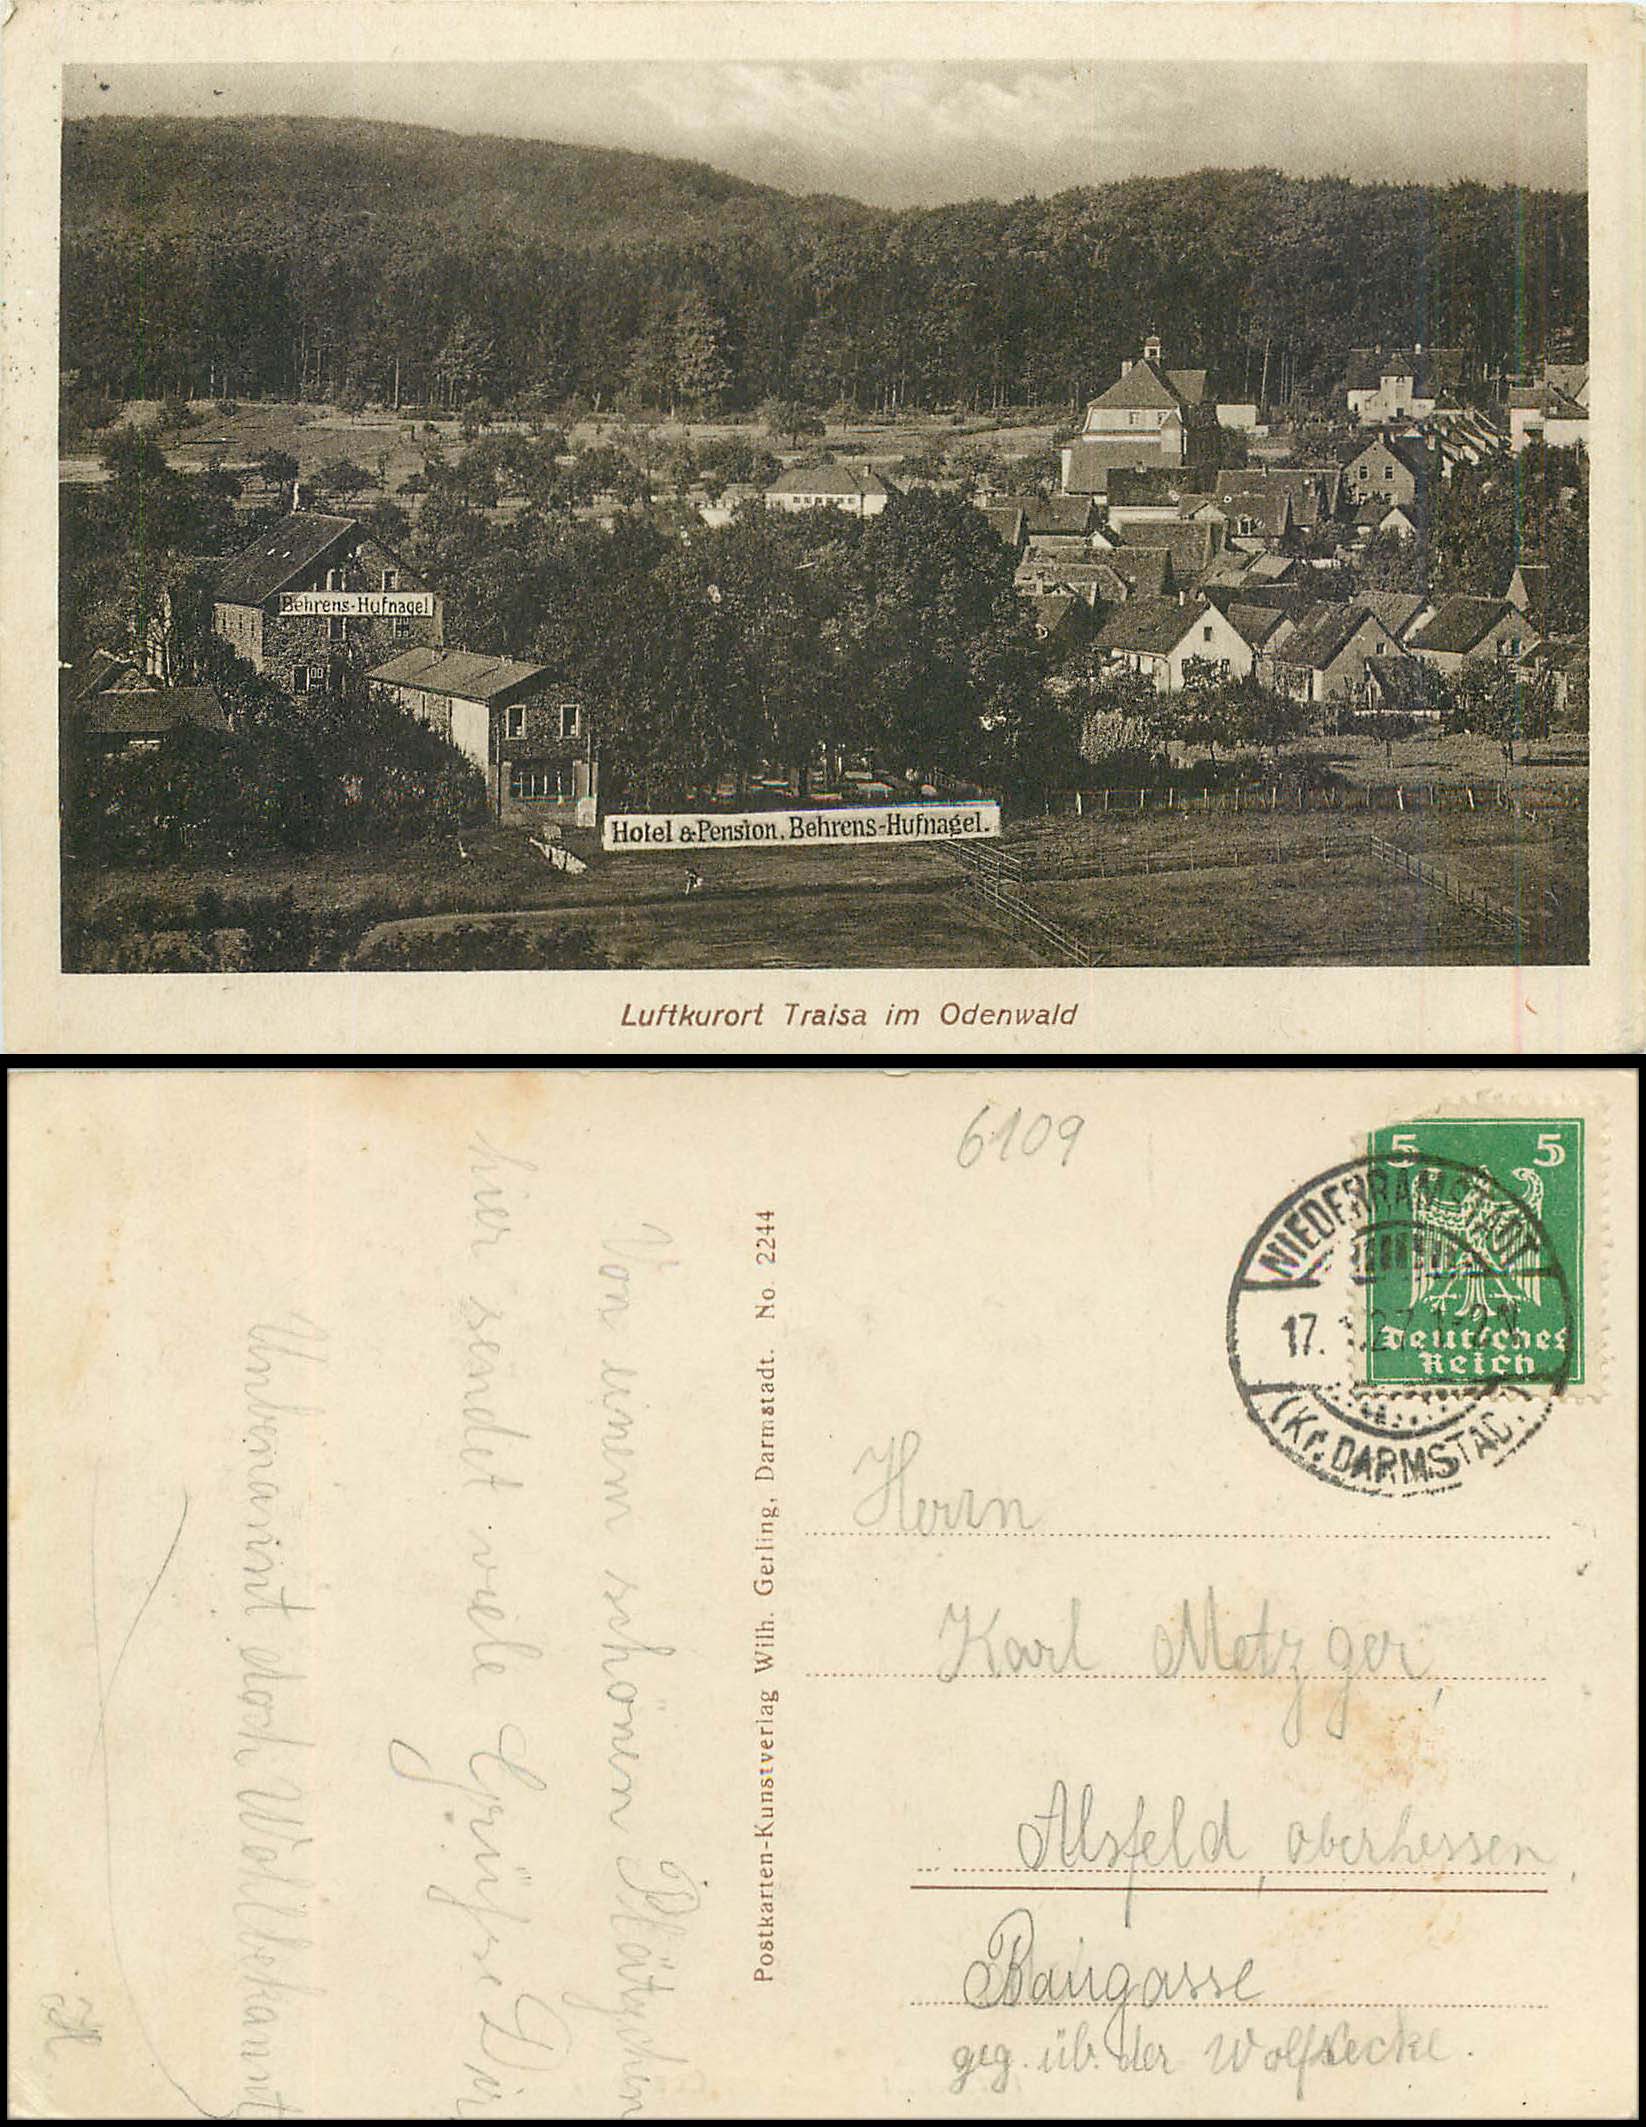 Behrens-Hufnagel
Hotel & Pension. Behrens-Hufnagel.
Luftkurort Traisa im Odenwald
6109
5 5
Deutsches
Reich
NIEDERRAMSTADT
17. 27. 1-2N
(Kr. DARMSTADT)
Von einem schönen Plätzchen
hier sendet viele Grüße Dir
Unbenannt doch Wohlbekannt
Postkarten-Kunstverlag Wilh. Gerling, Darmstadt. No. 2244
Herrn
Karl Metzger,
Alsfeld, oberhessen,
Baugasse
geg. üb. der Wolfsecke.